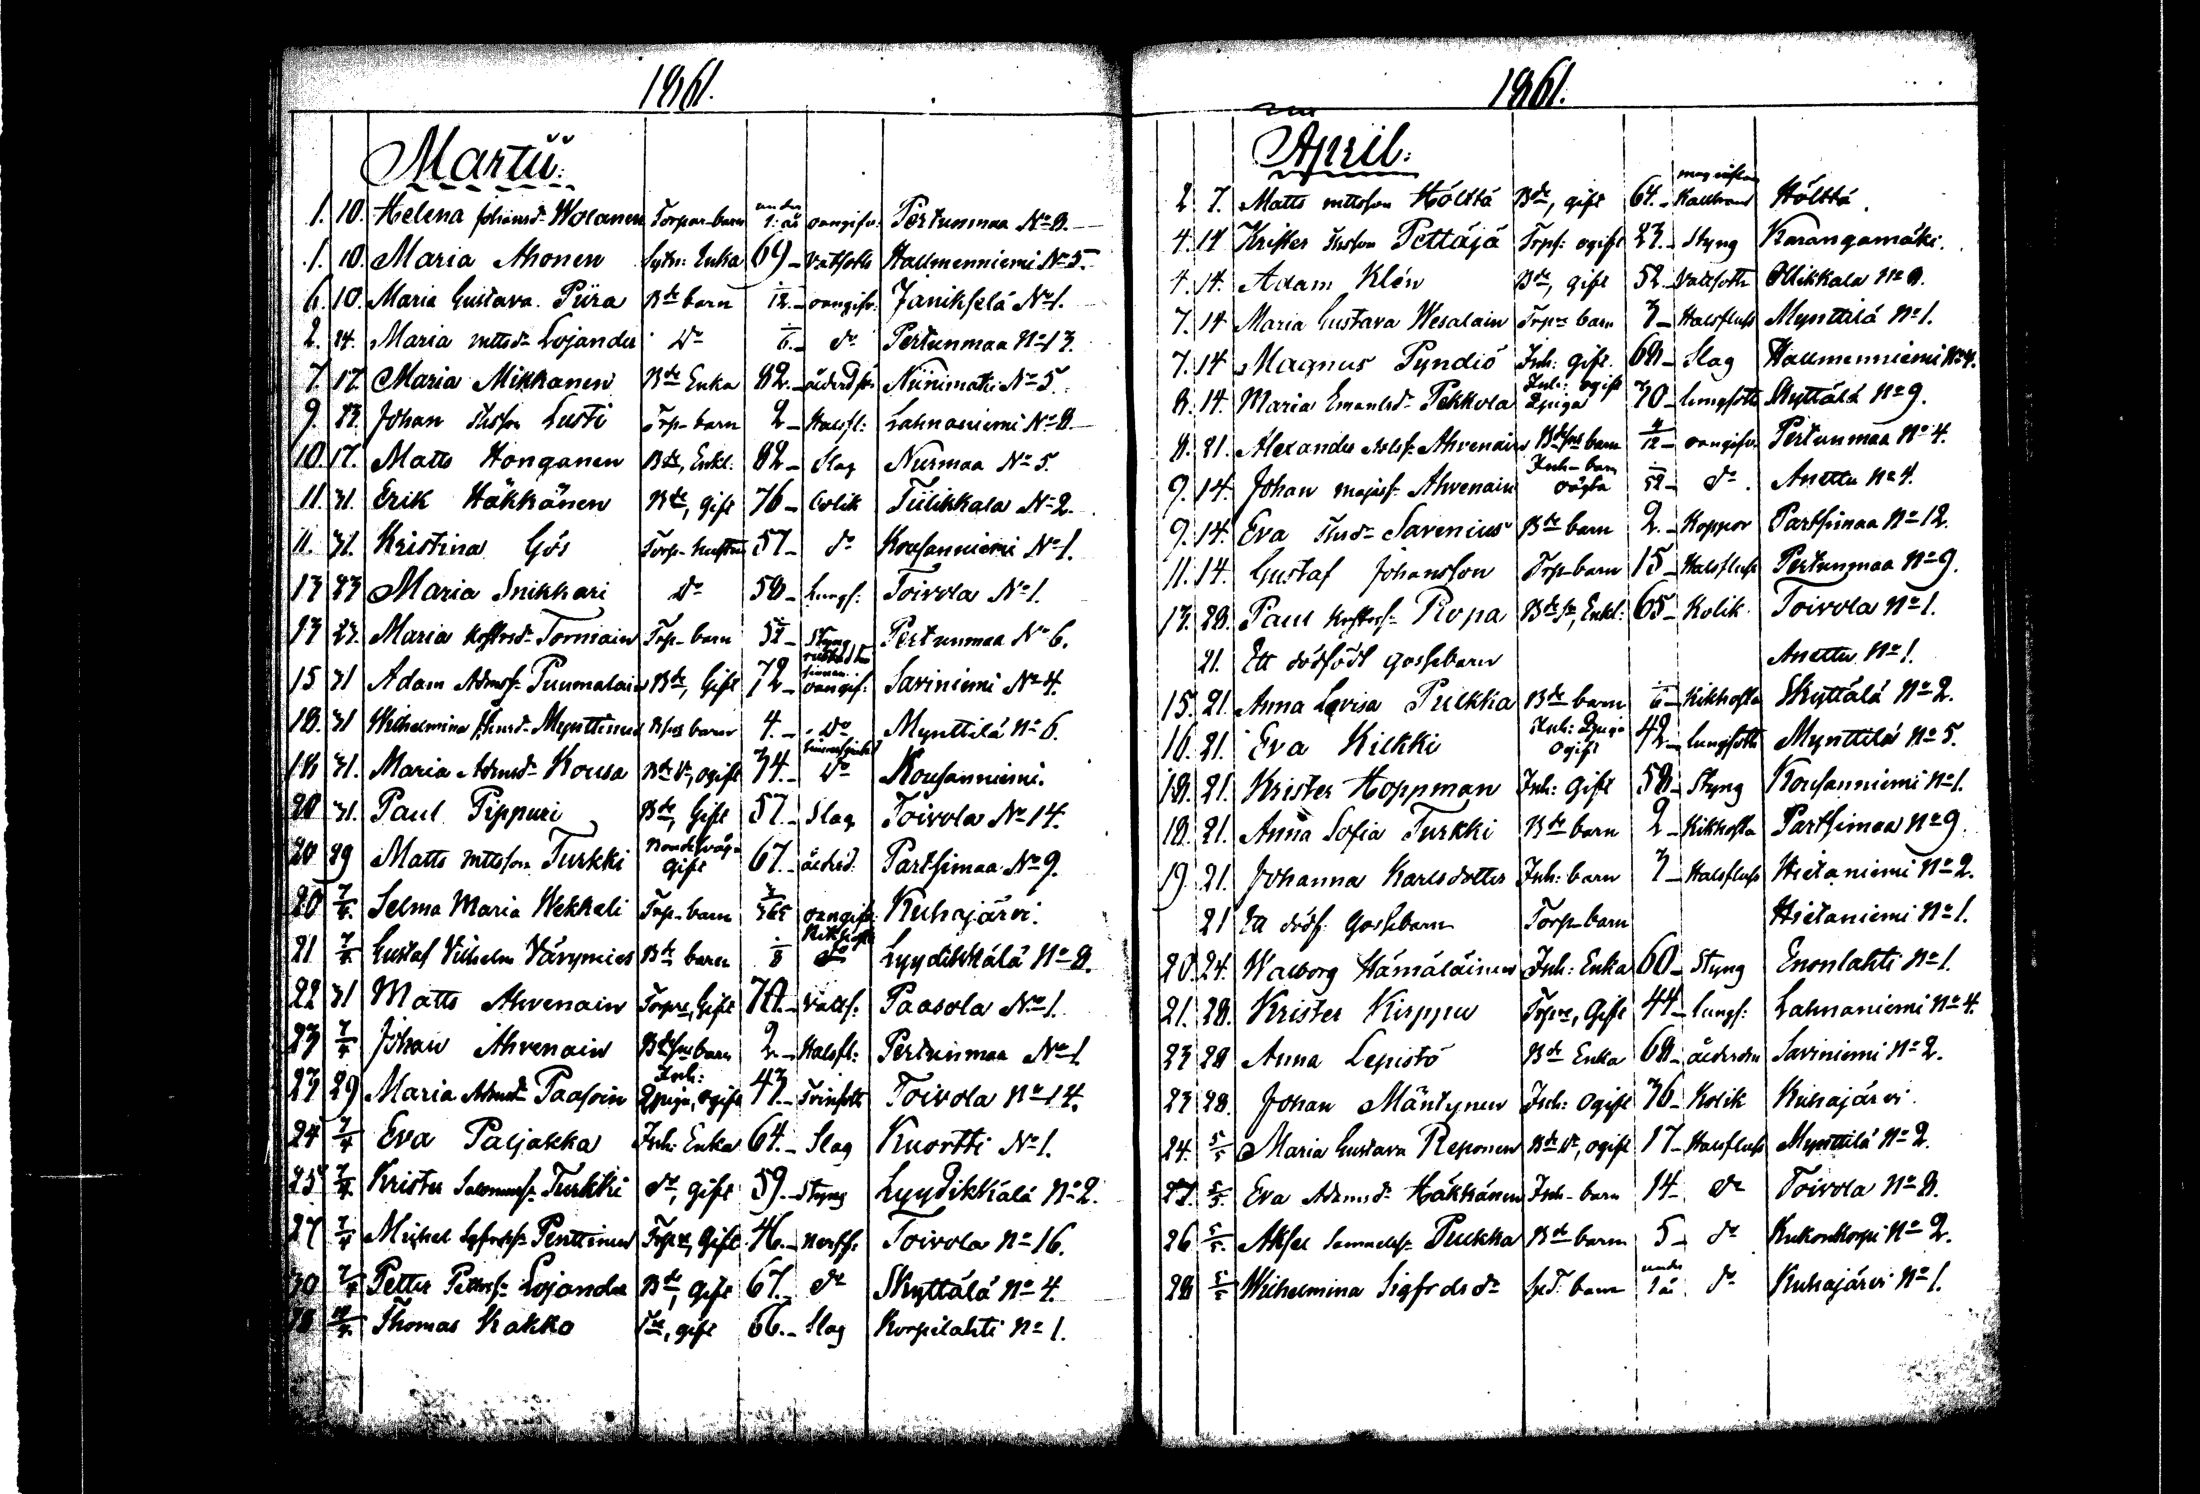 1861.
Martii:
1. 10. Helena Johansd. Wolanen Torpar-barn under 1: år oangifv: Pertunmaa No 8.
1. 10. Maria Ahonen Sytn: Enka 69 Vattsotts Hallmenniemi No 5.
6. 10. Maria Gustava Piira Bde barn 1/12 oangifv: Janikselä No 1.
2. 24. Maria Mttsdr Lojander Do 1/6 do Pertunmaa No 13.
7. 17. Maria Mikkanen Bde Enka 82 Niinimäki No 5.
9. 23. Johan Lusti Trp-barn 2 Halsfl: Lahnaniemi No 8
10. 17. Matts Honganen Bde, Enkl. 82 Slag Nurmaa No 5.
11. 31. Erik Häkkänen Bde, gift 76 Colik Tiilikkala No 2.
11. 31. Kristina Gös Torp-hustru 57 do Kousanniemi No 1.
13 23 Maria Snikkari Do 58 Lungs: Toivola No 1.
13 23. Maria Torniain Trp-barn 52 Styng Pertunmaa No 6.
15 31 Adam Admss. Puumalain Bde, Gift 72 oangif: Saviniemi No 4.
18. 31 Wilhelmina Mynttinen barn 4. Do Mynttilä No 6.
18 31. Maria Admsdr Kousa Bde dr, ogift 34. Do Kousanniemi.
20 31. Paul Pippuri Bde, Gift 57. Slag Toivola No 14.
20 29 Matts Mttsson Turkki gift 67. ålderd: Partsimaa No 9.
20 7/4. Selma Maria Wekkeli Trp-barn 3/365 oangifv: Kuhajärvi.
21 7/4. Gustaf Vilhelm Värymies Bde barn 1/8 Kikhosta Lyydikkälä No 8.
22 31 Matts Ahvenain Torpre, Gift Vatts: Paasola No 1.
23 7/4 Johan Ahvenain barn 2 Halsfl: Pertunmaa No 1
23 29 Maria Admsdr Paasoin Inh: Qpiga, ogift 43. Tvinsotts Toivola No 14.
24 7/4 Eva Paljakka Inh: Enka 64. Slag Kuortti No 1.
25 7/4. Krister Salomonss. Turkki do, gift 59 Styng Lyydikkälä No 2.
27 7/4 Michel Sgfrdss. Penttinen Trpre, Gift 46. Nerff: Toivola No 16.
30 7/4 Petter Petterss. Lojander Bde, gift 67. do Skyttälä No 4.
Thomas Kakko gift 66. Slag Korpilahti No 1.
1861.
April:
2 7. Matts Mttsson Hölttä Bde, gift 64. Kallbrand Hölttä.
4. 14 Krister Pettäjä Trp: ogift 23. Styng Karangamäki.
4. 14. Adam Klén Bde, gift 52. Vattsotts Ollikkala No 9.
7. 14 Maria Gustava Wesalain Trp barn 3 Halsfluss Mynttilä No 1.
7. 14 Magnus Pyndiö Inh: gift. 68 Slag Hallmenniemi No 4.
8. 14. Maria Emanlsdr Pekkola Inh: ogift Qpiga 70 lungsotts Skyttälä No 9.
8. 21. Alexander Ahvenain barn 4/12 oangifv. Pertunmaa No 4.
9. 14. Johan Ahvenain Inh-barn oägta 1/52 do. Anettu No 4.
9. 14. Eva Savenius Bde barn 2. Koppor Partsimaa No 12.
11. 14. Gustaf Johansson Trp-barn 15 Halsfluss Pertunmaa No 9.
13. 28. Paul Ropa Bde, Enkl. 65 Kolik Toivola No 1.
21. Ett dödfödt gossebarn Anettu No 1.
15. 21. Anna Lovisa Pulkka Bde barn 1/6 Kikhosta Skyttälä No 2.
16. 21. Eva Kilkki Inh: Qpiga ogift 42 lungsotts Mynttilä No 5.
18. 21. Krister Hoppman Inh: Gift 58 Styng Kousanniemi No 1.
18. 21. Anna Sofia Turkki Bde barn 2 Kikhosta Partsimaa No 9.
19. 21. Johanna Karlsdotter Inh: barn 3 Halsfluss Hietaniemi No 2.
21 Ett dödf. Gossebarn Torp-barn Hietaniemi No 1.
20. 24. Walborg Hämäläinen Inh: Enka 60 Styng Enonlahti No 1.
21. 28. Krister Kirppu Trpre, Gift 44 lungs: Lahnaniemi No 4.
23 28 Anna Lepistö Bde Enka 68 Saviniemi No 2.
23 28. Johan Mäntynen Inh: Ogift 76 Kolik Kuhajärvi.
24. 5/5 Maria Gustava Reponen Bde dr, ogift 17 Halsfluss Mynttilä No 2.
5/5. Eva Admsdr Häkkänen Inh-barn 14 do Toivola No 8.
26 5/5. Aksel Samuelss. Pulkka Bde barn 5 do Kukonkorpi No 2.
28 5/5 Wilhelmina Sigfrdsdr barn under 1 år do Kuhajärvi No 1.